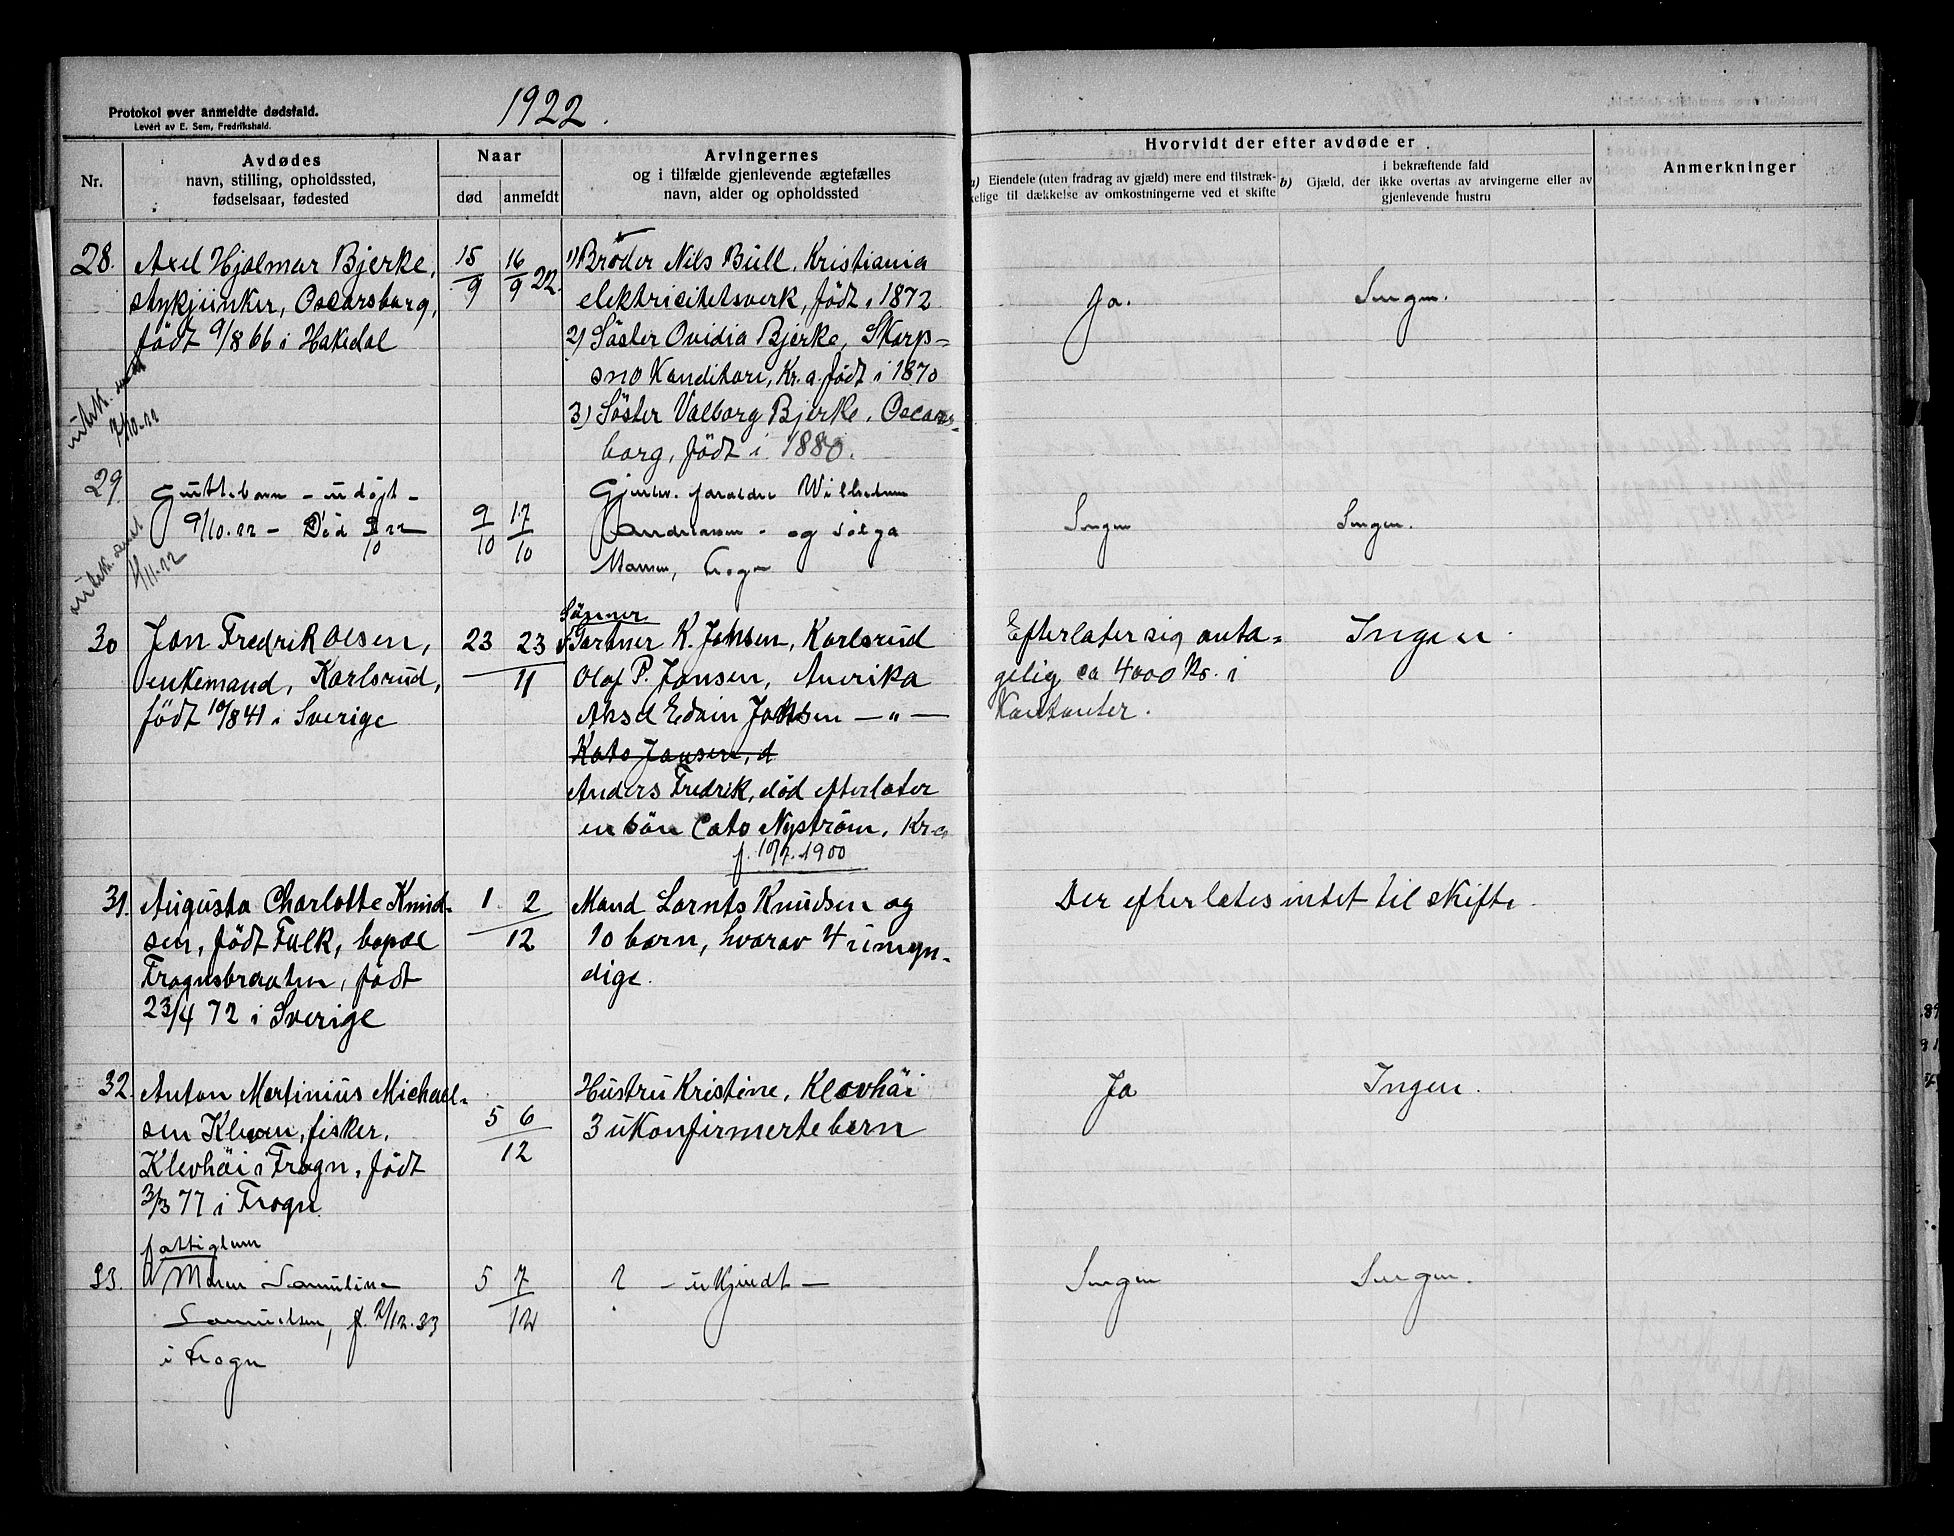 Protokol over anmeldte dødsfald.
Levert av E. Sem, Fredrikshald.
1922.
Nr.
Avdødes
navn, stilling, opholdssted,
fødselsaar, fødested
Naar
død
anmeldt
Arvingernes
og i tilfælde gjenlevende ægtefælles
navn, alder og opholdssted
Hvorvidt der efter avdøde er
a) Eiendele (uten fradrag av gjæld) mere end tilstræk-
kelige til dækkelse av omkostningerne ved et skifte
b) Gjæld, der i bekræftende fald
ikke overtas av arvingerne eller av
gjenlevende hustru
Anmerkninger
28. Axel Hjalmar Bjerke,
stykjunker, Oscarsborg,
født 9/8 66 i Hakedal
15/9 16/9 22.
1) Broder Nils Bull, Kristiania
elektricitetsverk, født i 1872
2) Søster Ovidia Bjerke, Skarps-
sno Kanditori, Kr.a født i 1870
3) Søster Valborg Bjerke, Oscars-
borg, født i 1880.
Ja. Ingen.
7/10-22
29 Guttebarn - udøpt -
9/10.22 - Død 9/10 22
9/10 17/10
Gjenlev. forældre
Andreassen - og Solga
Hansen, Frogn
Ingen Ingen.
4/11.22
30 Jan Fredrik Olsen,
enkemand, Karlsrud,
født 10/8 41 i Sverige
23 23/11
Sønner
Gartner K. Jansen, Karlsrud
Olaf P. Jansen, Amerika
Aksel Edvin Jansen — " —
Kato Jansen, d
Anders Fredrik, død efterlater
en søn Cato Nystrøm, Kr.a
f. 10/7.1900
Efterlater sig anta-
gelig ca 4000 Kr. i
Kontanter.
Ingen.
31. Augusta Charlotte Knud-
sen, født Falk, bopæl
Frognsbraaten, født
23/4 72 i Sverige
1 2/12
Mand Lornts Knudsen og
10 barn, hvorav 4 umyn-
dige.
Der efterlates intet til skifte.
32. Anton Martinius Michael-
sen Kleven, fisker,
Klevhøi i Frogn, født
3/3 77 i Frogn
5 6/12
Hustru Kristine, Klevhøi
3 ukonfirmerte barn
Ja Ingen.
fattiglem
33. Maren Samuline
Samuelsen, f. 2/12.33
i Frogn
5 7/12
? — ukjendt —
Ingen Ingen.